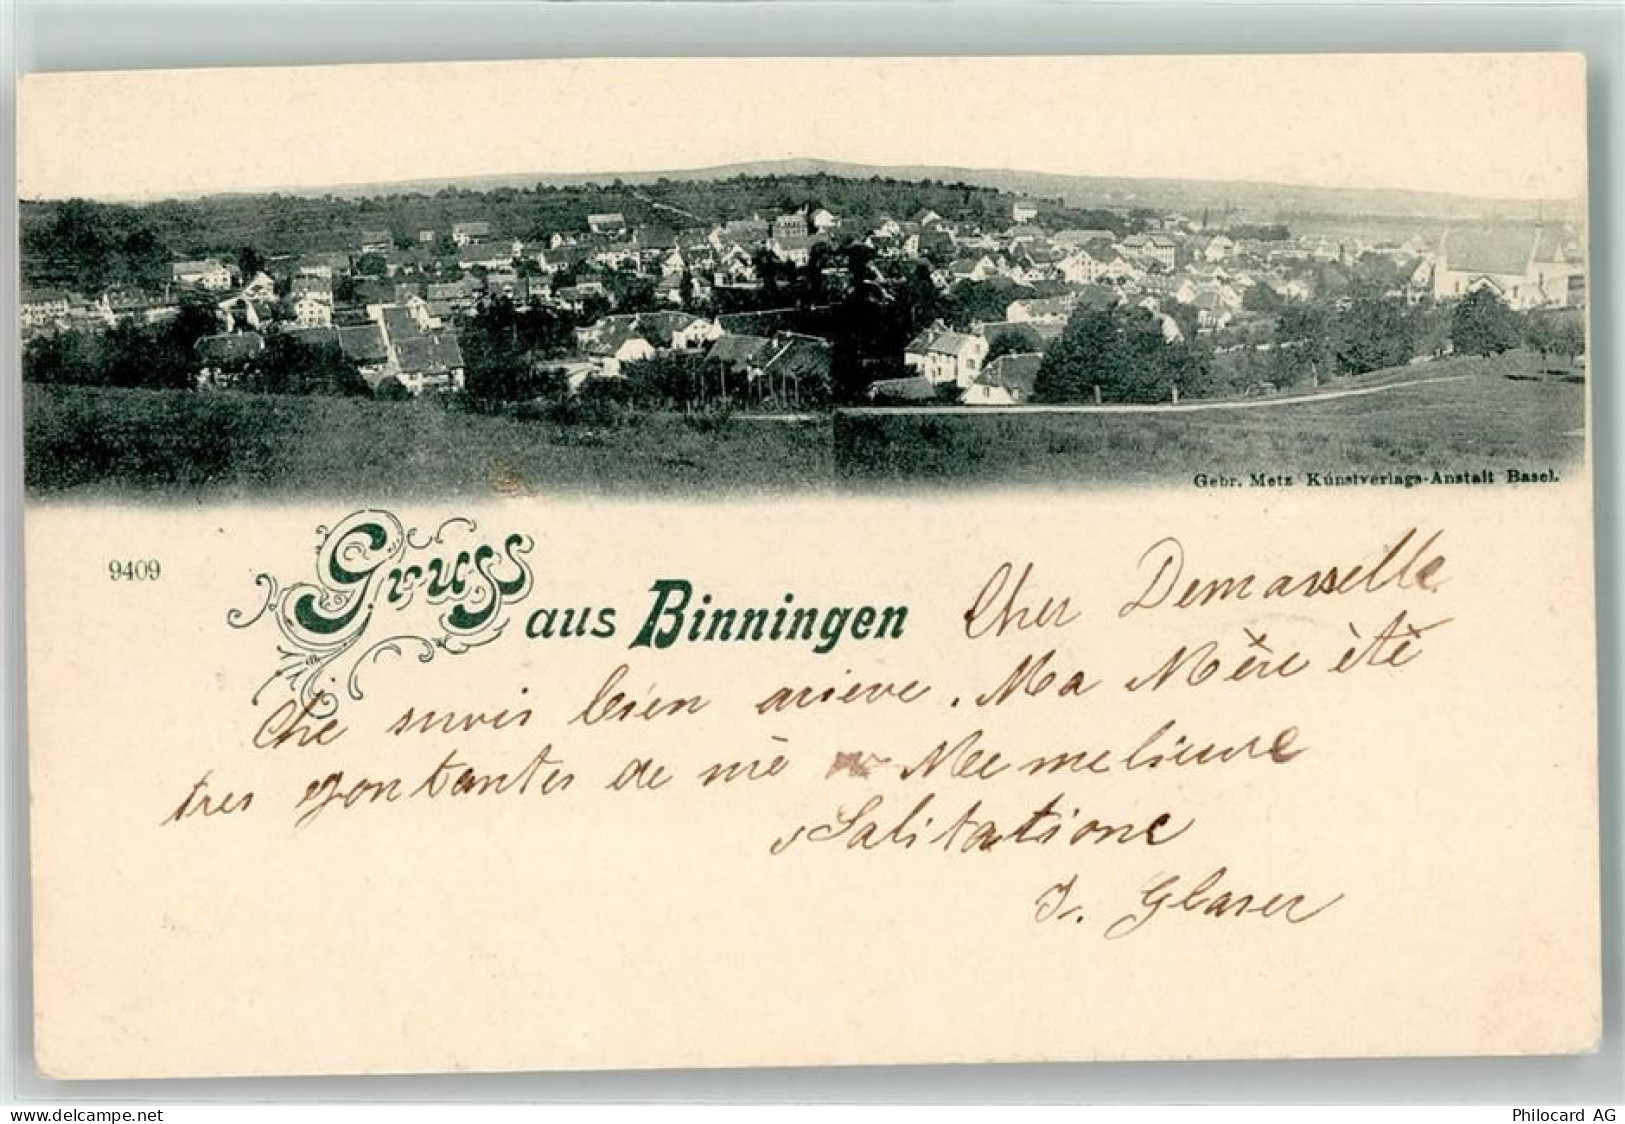 Gebr. Metz Kunstverlags-Anstalt Basel.
9409
Gruss
aus Binningen
Cher Demasselle
Che suvis bien arieve. Ma Mère étè
tres gontantes de mè Me melieure
Salitatione
J. Glaser
www.delcampe.net
Philocard AG